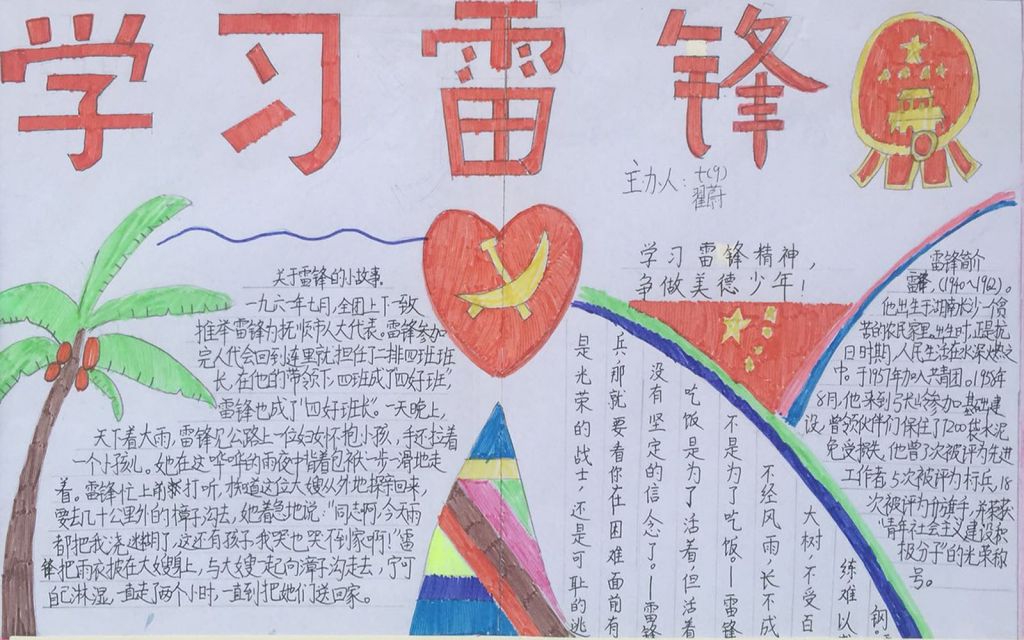 学习雷锋
主办人：七(9)
翟蔚
学习雷锋精神，
争做美德少年！
关于雷锋的小故事.
一九六一年七月,全团上下一致
推举雷锋为抚顺市人大代表。雷锋参加
完人代会回到连里就担任了二排四班班
长,在他的带领下,四班成了"四好班",
雷锋也成了"四好班长"。一天晚上,
天下着大雨,雷锋见公路上一位妇女怀抱小孩,手还拉着
一个小孩儿。她在这哗哗的雨夜中背着包袱一步一滑地走
着。雷锋忙上前打听,才知道这位大嫂从外地探亲回来,
要去几十公里外的樟子沟去,她着急地说:"同志啊,今天雨
都把我浇迷糊了,这还有孩子,我哭也哭不到家啊!"雷
锋把雨衣披在大嫂身上,与大嫂一起向漳子沟走去,宁可
自己淋湿,一直走了两个小时,一直到把她们送回家。
大树不受百
不经风雨,长不成
不是为了吃饭。—雷锋
吃饭是为了活着但活着
没有坚定的信念了。—雷锋
兵,那就要看你在困难面前有
是光荣的战士,还是可耻的逃
练难以
钢
雷锋简介
雷锋,(1940~1962)。
他出生于湖南长沙一个贫
苦的农民家里。出生时,正是抗
日时期,人民生活在水深火热之
中。于1957年加入共青团。1958年
8月,他来到弓长岭参加基础建
设,曾领伙伴们保住了7200袋水泥
免受损失,他曾3次被评为先进
工作者,5次被评为标兵,18
次被评为红旗手,并荣获
"青年社会主义建设积
极分子"的光荣称
号。